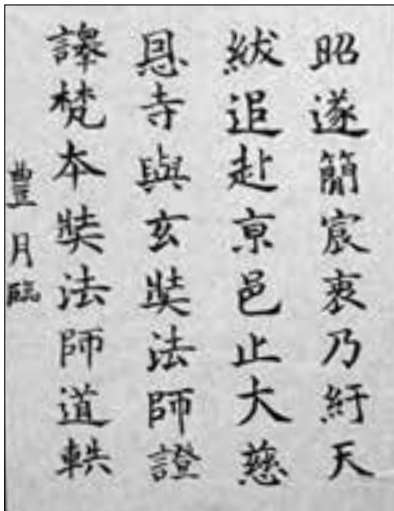 昭遂簡宸衷乃紆天
紱追赴亰邑止大慈
恩寺與玄奘法師證
譯梵本奘法師道軼
豊月臨